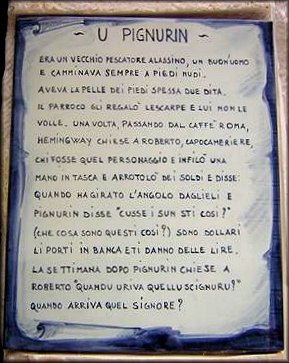 ~ U PIGNURIN ~
ERA UN VECCHIO PESCATORE ALASSINO, UN BUON'UOMO
E CAMMINAVA SEMPRE A PIEDI NUDI.
AVEVA LA PELLE DEI PIEDI SPESSA DUE DITA.
IL PARROCO GLI REGALO' LESCARPE E LUI NON LE
VOLLE. UNA VOLTA, PASSANDO DAL CAFFE' ROMA,
HEMINGWAY CHIESE A ROBERTO, CAPOCAMERIERE,
CHI FOSSE QUEL PERSONAGGIO E INFILO' UNA
MANO IN TASCA E ARROTOLO' DEI SOLDI E DISSE:
QUANDO HA GIRATO L'ANGOLO DAGLIELI E
PIGNURIN DISSE "CUSSE I SUN STI COSI?"
(CHE COSA SONO QUESTI COSI?) SONO DOLLARI
LI PORTI IN BANCA E TI DANNO DELLE LIRE.
LA SETTIMANA DOPO PIGNURIN CHIESE A
ROBERTO "QUANDU URIVA QUELLU SCIGNURU?"
QUANDO ARRIVA QUEL SIGNORE?